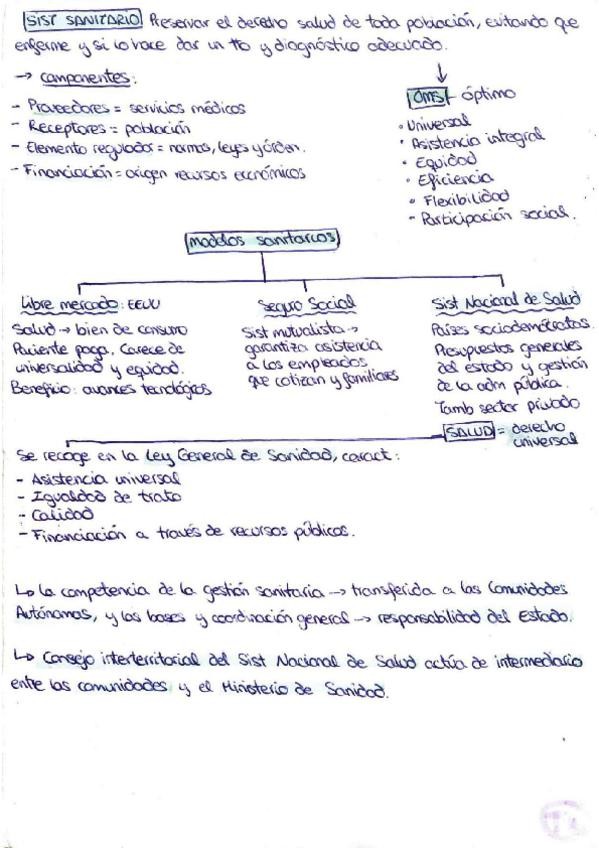 SIST SANITARIO Preservar el derecho salud de toda población, evitando que
enferme y si lo hace dar un tto y diagnóstico adecuado.
→ componentes:
- Proveedores = servicios médicos
- Receptores = población
- Elemento regulador = normas, leyes y órden.
- Financiación = origen recursos económicos
OMS - óptimo
• Universal
• Asistencia integral
• Equidad
• Eficiencia
• Flexibilidad
- Participación social.
modelos sanitarios
Libre mercado: EEUU
Salud → bien de consumo
Paciente paga. Carece de
universalidad y equidad.
Beneficio: avances tecnológicos
Seguro Social
Sist mutualista →
garantiza asistencia
a los empleados
que cotizan y familiares
Sist Nacional de Salud
Países sociodemócratas.
Presupuestos generales
del estado y gestión
de la adm pública.
Tamb sector privado
SALUD = derecho
universal
Se recoge en la Ley General de Sanidad, caract:
- Asistencia universal
- Igualdad de trato
- Calidad
- Financiación a través de recursos públicos.
↳ La competencia de la gestión sanitaria → transferida a las Comunidades
Autónomas, y las bases y coordinación general → responsabilidad del Estado.
↳ Consejo interterritorial del Sist Nacional de Salud actúa de intermediario
entre las comunidades y el Ministerio de Sanidad.